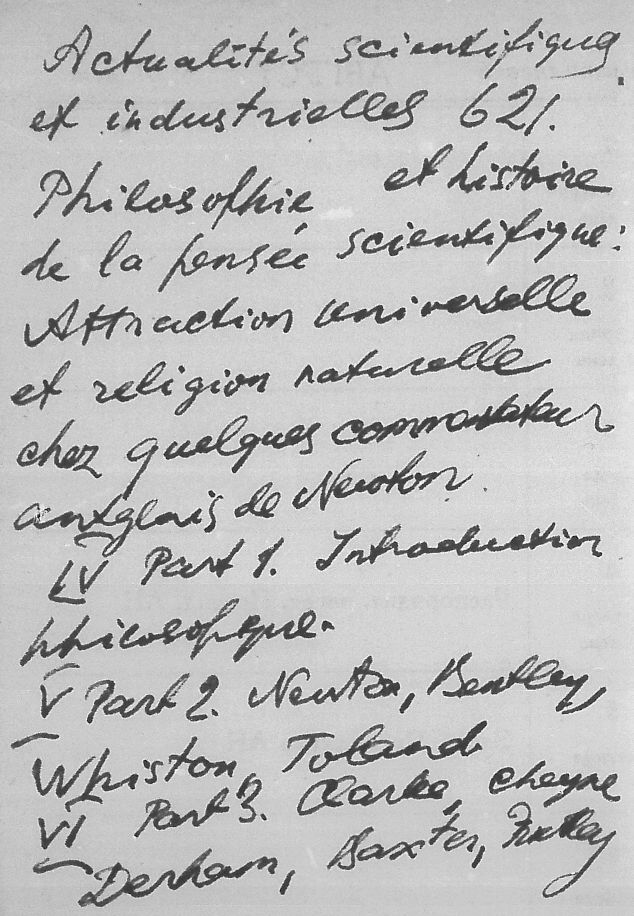 Actualités scientifiques
et industrielles 621.
Philosophie et histoire
de la pensée scientifique:
Attraction universelle
et religion naturelle
chez quelques commentateur
anglais de Newton.
IV Part 1. Introduction
philosophique.
V Part 2. Newton, Bentley,
Whiston, Toland
VI Part 3. Clarke, Cheyne
Derham, Baxter,